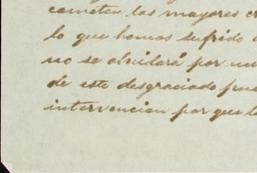 cometen las mayores
lo que hemos sufrido
no se olvidará por
de este desgraciado
intervencion por que